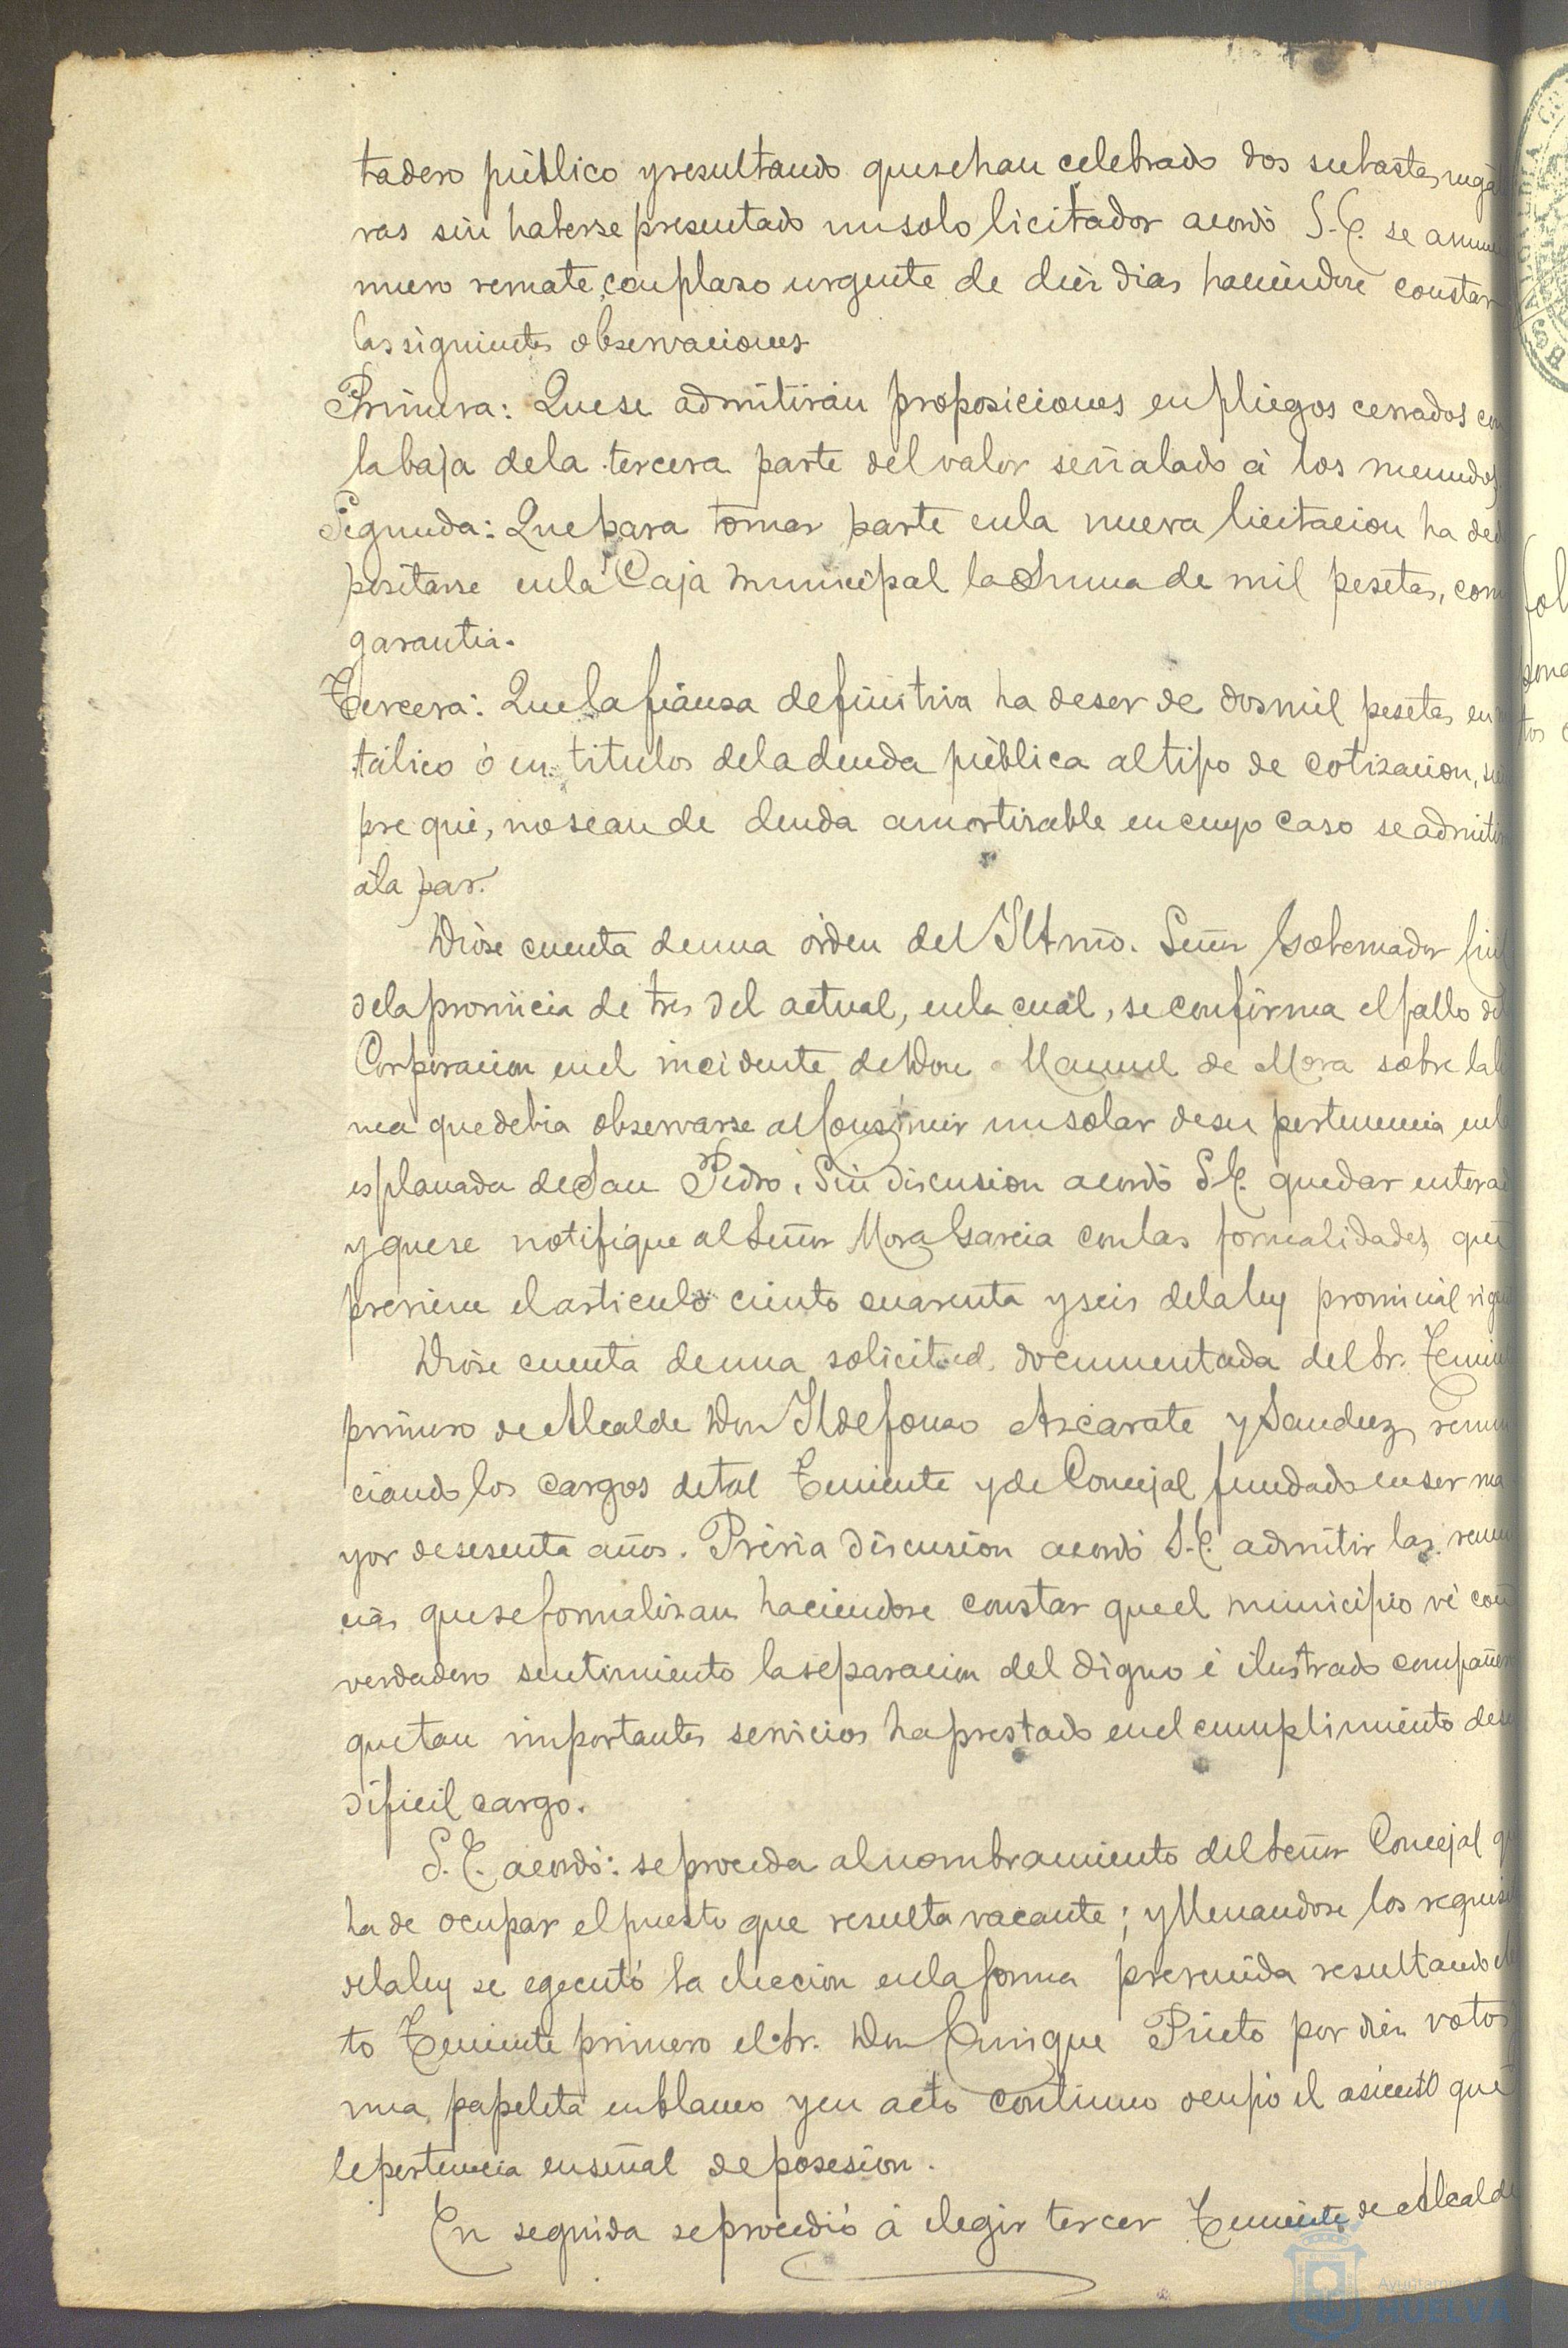 tadero público y resultando que se han celebrado dos subastas nega
ras sin haberse presentado un solo licitador acordó S.E. se anun
nuevo remate, con plazo urgente de diez dias haciendose constar
las siguientes observaciones
Primera: Que se admitirán proposiciones en pliegos cerrados con
la baja de la tercera parte del valor señalado á los menudos,
Segunda: Que para tomar parte en la nueva licitacion ha de d
positarse en la Caja Municipal la Suma de mil pesetas, com
garantia.
Tercera: Que la fianza definitiva ha de ser de dos mil pesetas en m
tálico ó en titulos de la deuda pública al tipo de cotizacion, si
pre que, no sean de deuda amortizable en cuyo caso se admiti
á la par.
Dióse cuenta de una órden del Iltmo. Señor Gobernador Civil
de la provincia de tres del actual, en la cual, se confirma el fallo de
Corporacion en el incidente de Don Manuel de Mora sobre la li
nea que debia observarse al construir un solar de su pertenencia en la
esplanada de San Pedro. Sin discusion acordó S.E. quedar enterad
y que se notifique al Señor Mora Garcia con las formalidades que
previene el articulo ciento cuarenta y seis de la ley provincial vige
Dióse cuenta de una solicitud documentada del Sr. Tenien
primero de Alcalde Don Ildefonso Azcarate y Sanchez, renun
ciando los cargos de tal Teniente y de Concejal fundado en ser ma
yor de sesenta años. Prévia discusion acordó S.E. admitir las renun
cias que se formalizan haciendose constar que el municipio vé con
verdadero sentimiento la separacion del digno é ilustrado compañero
que tan importantes servicios ha prestado en el cumplimiento de su
dificil cargo.
S.E. acordó: se proceda al nombramiento del Señor Concejal q
ha de ocupar el puesto que resulta vacante; y llenandose los requisi
de la ley se egecutó la eleccion en la forma prevenida resultando ele
to Teniente primero el Sr. Don Enrique Prieto por diez votos
una papeleta en blanco y en acto contínuo ocupó el asiento que
le pertenecia en señal de posesion.
En seguida se procedió á elegir tercer Teniente de Alcalde
Ayuntamiento
HUELVA